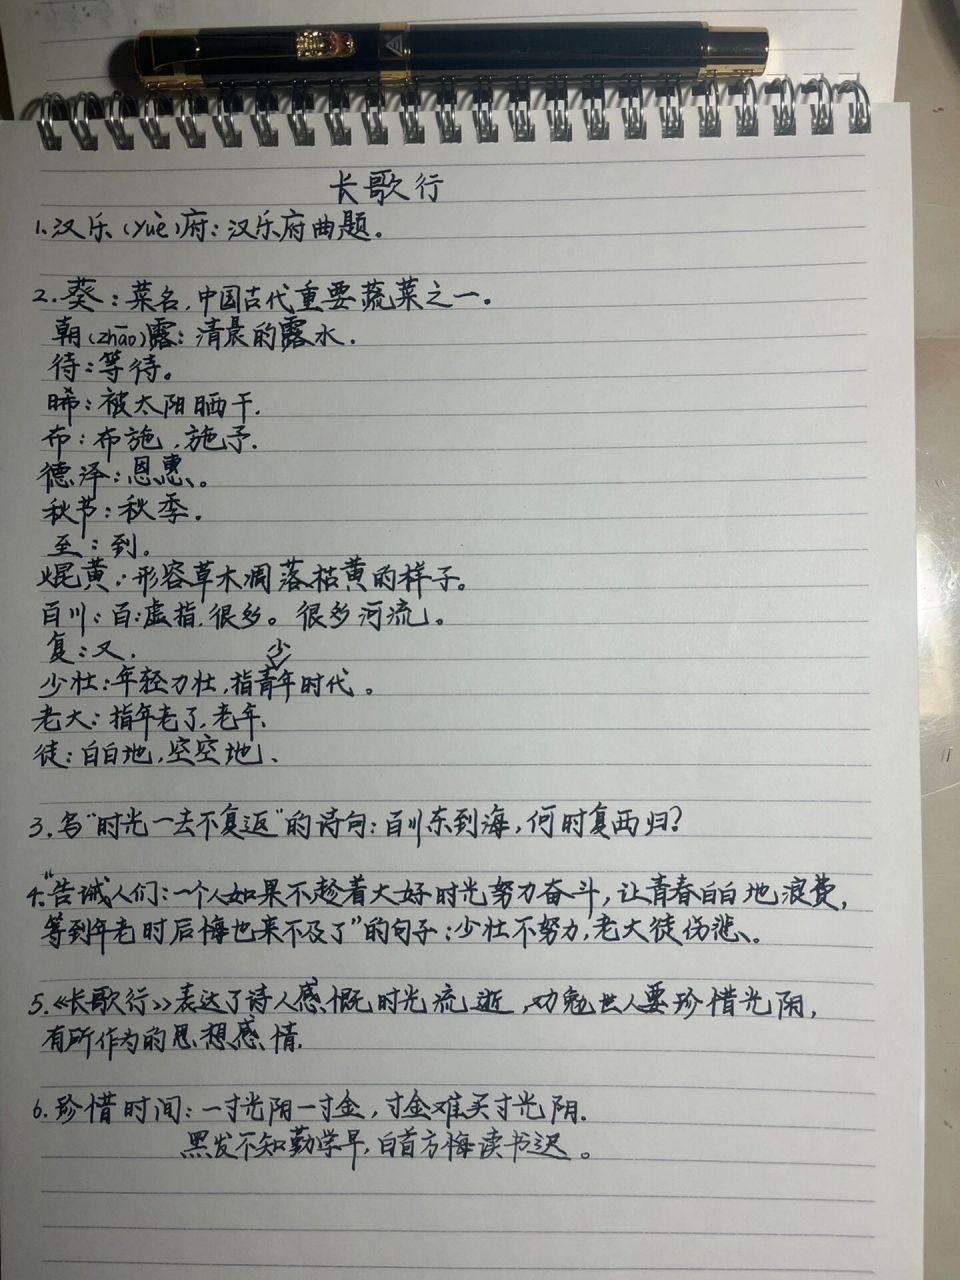 长歌行
1.汉乐(yuè)府:汉乐府曲题。
2.葵:菜名,中国古代重要蔬菜之一。
朝(zhāo)露:清晨的露水.
待:等待。
晞:被太阳晒干.
布:布施,施予.
德泽:恩惠。
秋节:秋季.
至:到。
焜黄:形容草木凋落枯黄的样子。
百川:百:虚指,很多。很多河流。
复:又.
少
少壮:年轻力壮,指青年时代。
老大:指年老了,老年.
徒:白白地,空空地、
3.写“时光一去不复返”的诗句:百川东到海,何时复西归?
4.“告诫人们:一个人如果不趁着大好时光努力奋斗,让青春白白地浪费,
等到年老时后悔也来不及了”的句子:少壮不努力,老大徒伤悲、。
5.《长歌行》表达了诗人感慨时光流逝,劝勉世人要珍惜光阴,
有所作为的思想感情.
6.珍惜时间:一寸光阴一寸金,寸金难买寸光阴.
黑发不知勤学早,白首方悔读书迟。